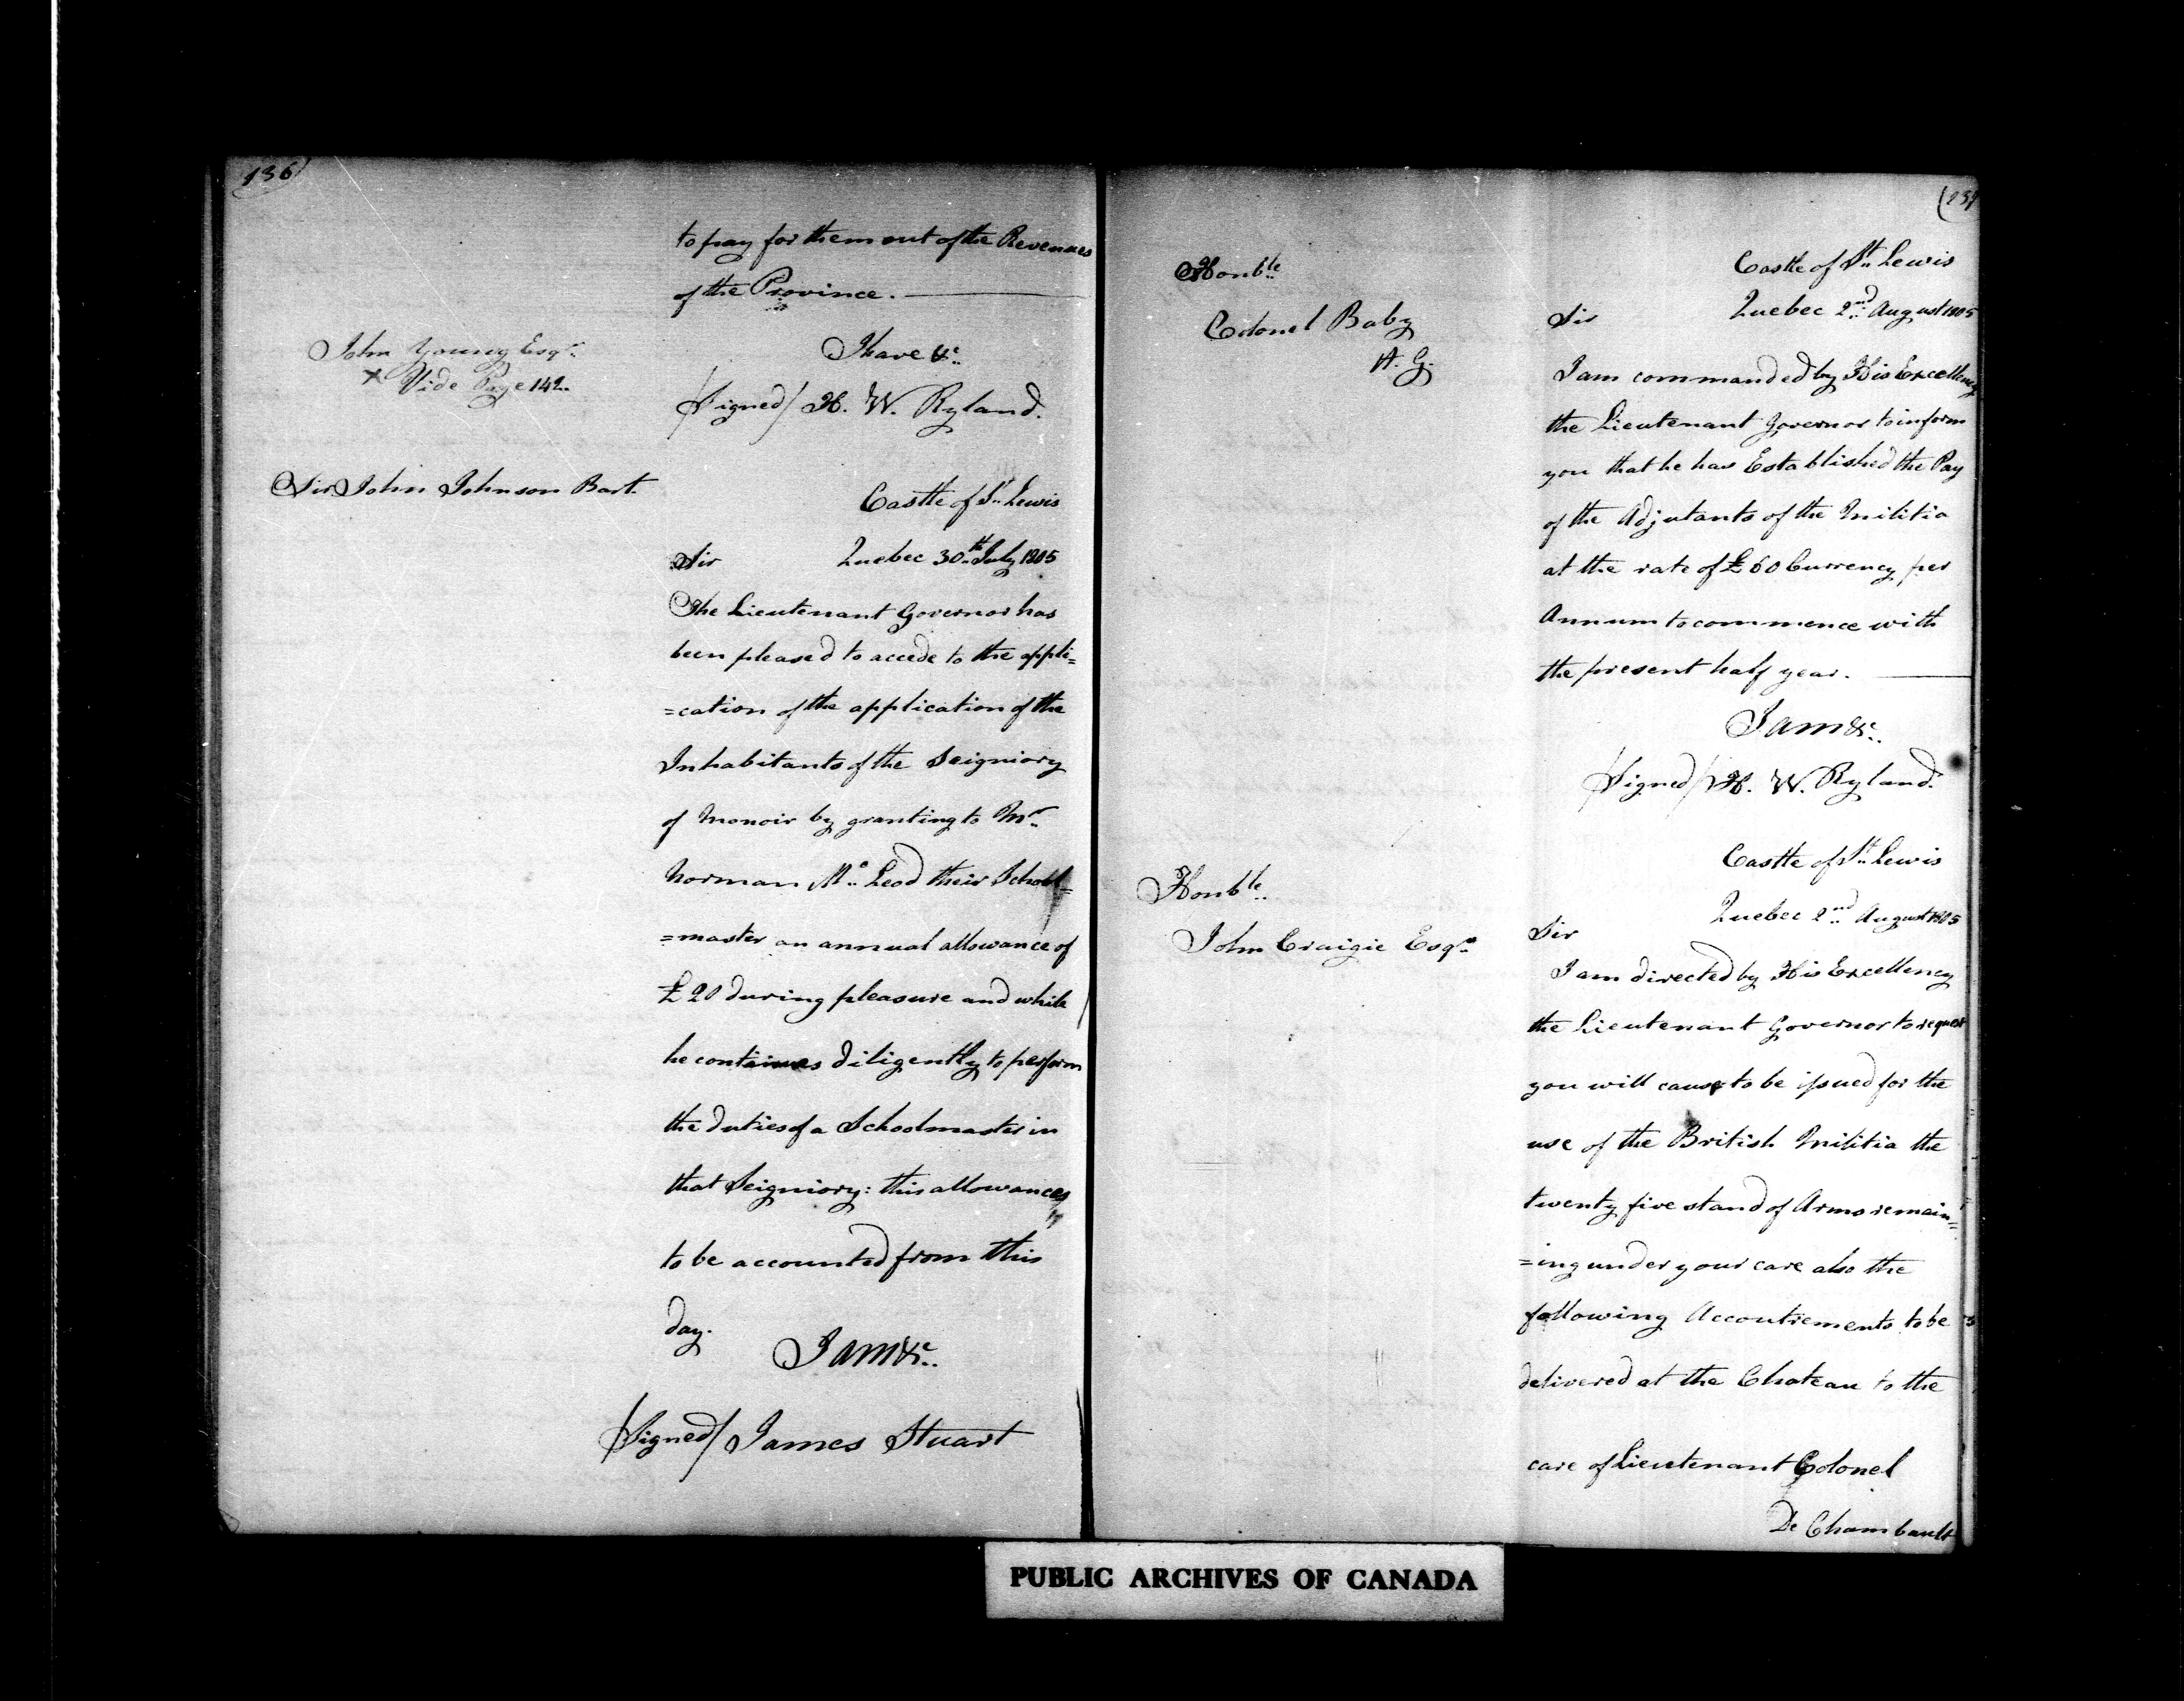 136)
to pay for them out of the Revenues
of the Province.
John Young Esqr.
x Vide Page 142.
I have &c.
/Signed/ H. W. Ryland.
Sir John Johnson Bart.
Castle of St. Lewis
Sir Quebec 30th. July 1805
The Lieutenant Governor has
been pleased to accede to the appli=
=cation of the application of the
Inhabitants of the Seigniory
of Monoir by granting to Mr.
Norman Mc. Leod their School=
=master an annual allowance of
£20 during pleasure and while
he continues diligently to perform
the duties of a Schoolmaster in
that Seigniory: this allowances
to be accounted from this
day.
I am &c.
/Signed/ James Stuart
(137
Honble.
Colonel Baby
A. G.
Castle of St. Lewis
Sir Quebec 2nd. August 1805
I am commanded by His Excellency
the Lieutenant Governor to inform
you that he has Established the Pay
of the Adjutants of the Militia
at the rate of £60 Currency per
Annum to commence with
the present half year.
I am &c.
/Signed/ H. W. Ryland.
Honble.
John Craigie Esqr.
Castle of St. Lewis
Quebec 2nd. August 1805
Sir
I am directed by His Excellency
the Lieutenant Governor to request
you will cause to be issued for the
use of the British Militia the
twenty five stand of Arms remain=
=ing under your care also the
following Accoutrements to be
delivered at the Chateau to the
care of Lieutenant Colonel
De Chambault
PUBLIC ARCHIVES OF CANADA